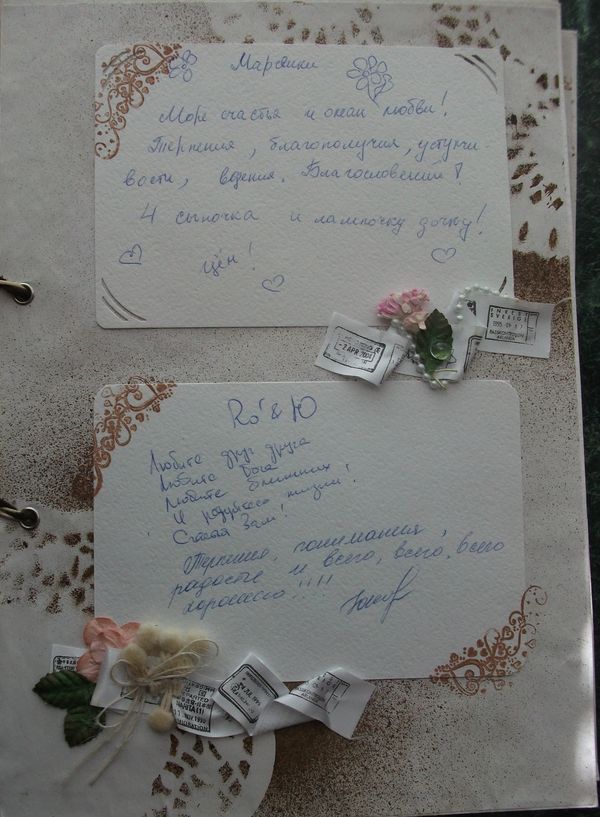 Море счастья и океан любви!
Терпения, благополучия, уступчи-
вости, везения. Благословений!
4 сыночка и лампочку дочку!
Ro' & Ю
Любите друг друга
Любите Бога
Любите ближних
И радуйтесь жизни!
Счастья Вам!
Терпения, понимания,
радости и всего, всего, всего
хорошего!!!!
2 APR 2001
SVERIGE